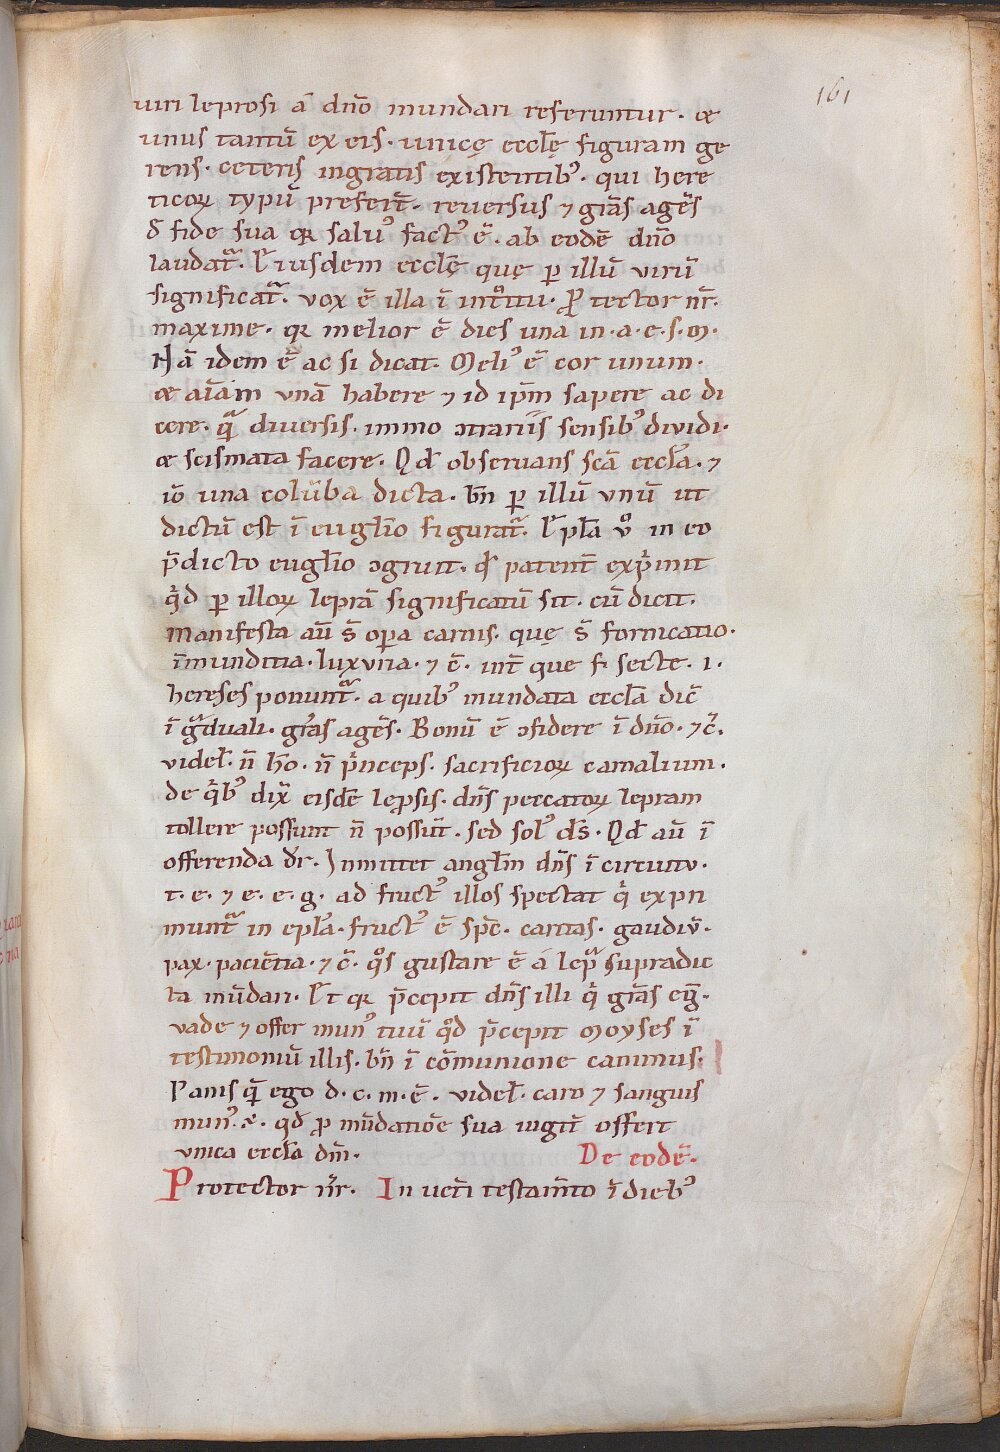 161
uiri leprosi a dño mundari referuntur. &
unus tantũ ex eis. unicę ecclę figuram ge
rens. ceteris ingratis existentib'. qui here
ticoꝝ typũ prefert̃. reuersus ⁊ gr̃as agẽs
fide sua qr salu' fact' ẽ. ab eodẽ dño
laudat̃. eiusdem ecclę̃ que ꝑ illũ uirũ
significat̃. vox ẽ illa ĩ intͦitu. Protector nr̃.
maxime. qr melior ẽ dies una in. a. e. s. m.
Nã idem ẽ ac si dicat. Meli' ẽ cor unum.
& aĩam vnã habere ⁊ id ip̃m sapere ac di
cere. q̃ diuersis. immo ↄtrariis sensib' diuidi.
& scismata facere. Qđ obseruans sc̃a eccl̃a. ⁊
iõ una colũba dicta. bñ ꝑ illũ vnũ ut
dictũ est ĩ euglĩo figurat̃. Epl̃a v̊ in eo
p̃dicto euglĩo ↄgruit. qđ patent̃ exp̃mit
qͥd ꝑ illoꝝ leprã significatũ sit. cũ dicit.
Manifesta aũ s̃ oꝑa carnis. quę s̃ fornicatio.
ĩmunditia. luxuria. ⁊ c̃. int̃ que & secte. i.
hereses ponunt̃. a quib' mundata eccl̃a dic̃
ĩ gͣduali. gr̃as agẽs. Bonũ ẽ ↄfidere ĩ dño. ⁊c̃.
videl̃. ñ ho. ñ pͥnceps. sacrificioꝝ carnalium.
de qͥb' dix̃ eisdẽ leprosis. dñs peccatoꝝ lepram
tollere possunt ñ possũt. sed sol' ds̃. Qđ aũ ĩ
offerenda dr̃. Inmittet angl̃m dñs ĩ circuitu.
t. e. ⁊ e. e. g. ad fruct' illos spectat qͥ expri
munt̃ in epl̃a. fruct' ẽ sp̃c. caritas. gaudiũ.
pax. paciẽtia. ⁊ c̃. qͦs gustare ẽ a lepͣ supradic
ta mũdari. Et qr p̃cepit dñs illi qͥ gr̃as eg̃.
vade ⁊ offer mun' tuũ qͦd p̃cepit Moyses ĩ
testimoniũ illis. bñ ĩ cõmunione canimus.
Panis q̃ ego d. c. m. ẽ. videl̃. caro ⁊ sanguis
mun' ẽ. qđ ꝓ mũdatiõe sua iugit̃ offert
vnica eccl̃a dm̃.
De eodẽ.
Protector nr̃. In uetĩ testam̃to ĩ dieb'